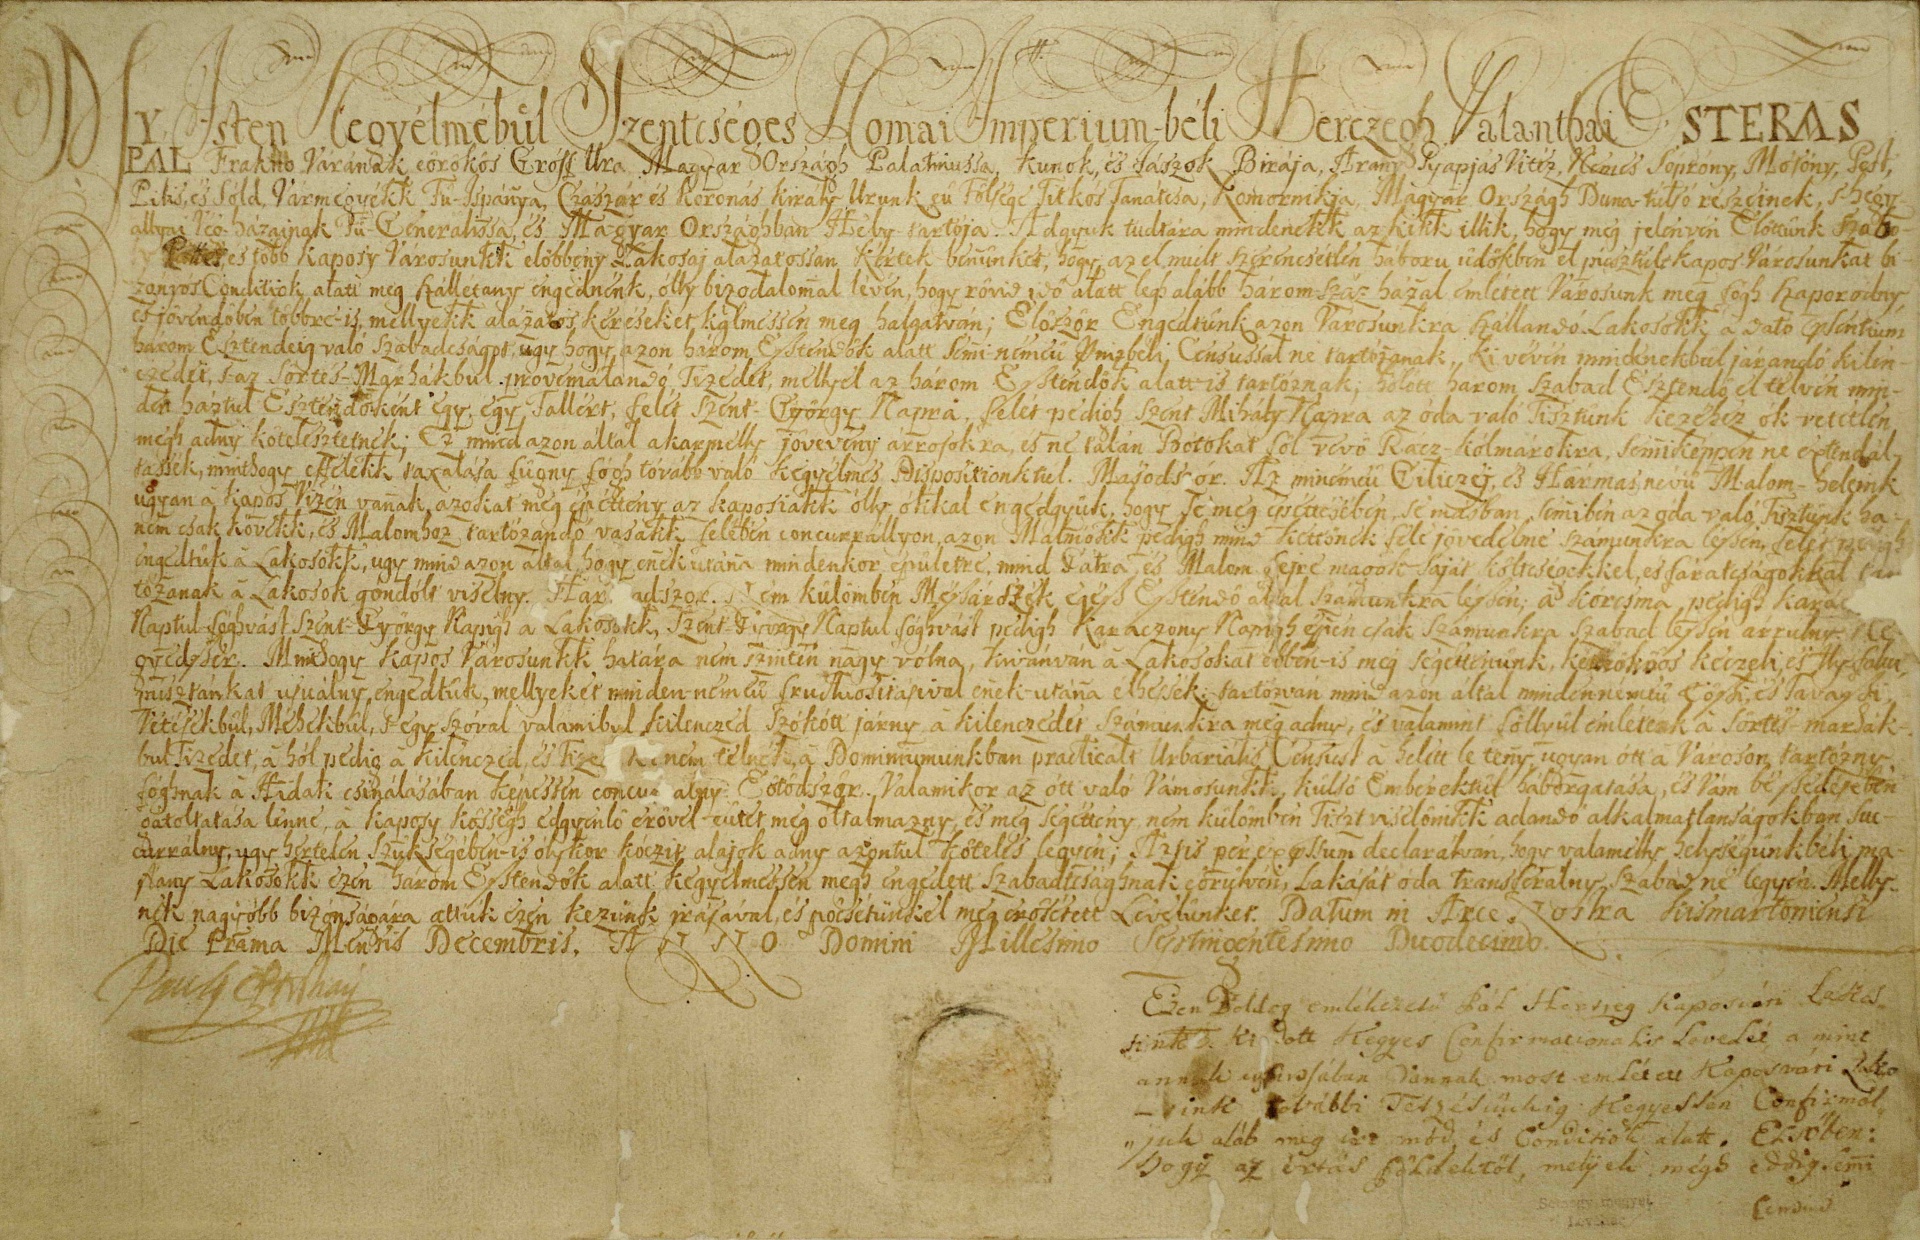 MY Isten Kegyélmébül Szentcséges Romai Imperium-béli Herczegh Galanthai ESTERAS
PAL Fraknó Váranak eörökös Gróff Ura Magyar Országh Palatinussa, Kunok, és Jászok Birája, Arany Gyapjas Vitéz, Nemes Soprony, Mosony, Pest,
Pilis, és Sóld, Vármegyékk Fü-Ispánya, Császár és Koronás Király Urunk eü Fölsége Titkos Tanátcsa, Komornikja, Magyar Országh Duna-tulsó részeinek, s-hegy-
allyai Vég-házainak Fü-Generalissa, és Magyar Országhban Hely-tartója. Adgyuk tudtára mindeneknek az kikk illik, hogy meg jelenvén Előttünk Szabo
és több Kaposy Városunkk előbbeny Lakosaj alázatossan kértek bennünket, hogy az el mult szerencsétlen háboru üdőkben el pusztult Kapos Városunkat bi-
zonyos Conditiók alatt meg szálletany engednénk, olly bizodalommal lévén, hogy rövid idő alatt legh alább három száz házzal emletett Városunk meg fogh szaporodny
és jövendőben többre-is, mellyekk alázatos kéreseket kglmessen meg halgatván; Először Engedtünk azon Városunkra szállandó Lakosokk a dato
három Esztendeig való szabadcságot, ugy hogy azon három Esztendők alatt semi némeü Censussal ne tartozzanak, ki vévén mindenekbül járandó kilen-
czedet, s-az Sörtés-Marhákbul proveniálandó Tizedet, mellyel az három Esztendők alatt-is tartóznak; hólott három szabad Esztendő el telvén min-
den háztul Esztendőnként egy, egy Tallért, felét Szent-György Napra, felét pedigh Szent Mihály Napra az oda való Tisztünk kezéhez ok vetetlen
megh adny kötelesztetnek; Ez mind azon által akarmelly jövevény árrosokra, és ne talán Botokat föl vévő Racz-Kólmárokra, semiképpen ne extendál-
tassék, minthogy effélékk taxálása fügny fogh tovább való kegyelmes Dispositiónktul. Masodszor. Az minémeü Cziliczej, és Hármas nevü Malom-heleink
ugyan a Kapos Vizén vannak, azokat meg épétteny az kaposiakk olly ókkal engedgyük, hogy se meg épéttesében, se másban semiben az oda való Tisztünk ha-
nem csak kövekk, és Malomhoz tartózandó vasakk felében concurrállyon, azon Malmokk pedigh mind kettőnek fele jövedelme számunkra lészen, felét pedigh
engedtük a Lakosokk, ugy mind azon által, hogy ennekutánna mindenkor épületre, mind Gátra, és Malom fejre magok saját költcségekkel, és fáratcságokkal tar
tózanak a Lakosok gondolt viselny. Har adszor. Nem külömben Mészárszék egész Esztendő által számunkra lészen; a korcsma pedigh Karác
Naptul foghvást Szent-György Napigh a Lakosokk, Szent-György Naptul foghvást pedigh Karáczony Napigh eppen csak számunkra szabad lészen árrulny. Ne
gyedszer. Minthogy Kapos Városunkk határa nem szintén nagy vólna, kivánván a Lakosokat ebben-is meg segéttenünk, és
pusztánkat usuálny engedtük, mellyeket minden-némeü fructuositasival ennek-utánna élhessék; tartózván mind azon által minden némeü Őszi, és Tavaszi
Vetésekbül, Méhekbül, s-egy szóval valamibul kilenczed szokott járny a kilenczedet számunkra meg adny, és valamint föllyül emletenk a Sörtés-marhák-
bul Tizedet, a hól pedig a kilenczed, és Tize ki nem telnék, a Dominiumunkban practicált Urbarialis Censust a helett le teny, ugyan ott a Városon tartózny
foghnak a Hidak csinálásában képessen concur álny. Eötödször. Valamikor az ott való Vámosunkk, külső Emberektül háborgatása, és Vám bé szedésében
gátoltatása lenne, a Kaposy kösségh edgyenlő erővel eütet meg óltalmazny, és meg segétteny, nem külömben Tiszt viselőinkk adandó alkalmatlanságokban suc-
currálny, ugy hertelen szükségében-is olykor koczit alájok adny azontul köteles legyen; Azt is per expressum declarálván, hogy valamelly helységünkbéli ma-
Lakosokk ezen három Esztendők alatt kegyelmessen megh engedett szabadcsághnak eörülvén, Lakását oda transferálny szabad ne legyen. Melly-
nek nagyobb bizonságára attuk ezen kezünk irásával, és pöcsétünkkel meg erőssétett Levelünket. Datum in Arce Nostra Kismartoniensi
Die Prama Mensis Decembris. ANNO Domini Millesimo Septingentesimo Duodecimo.
Ezen Boldog emlékezetü Pál Herczeg Kaposvári Lakos
sink ki dott Kegyes Confirmationalis Levelét a mint
annak Vannak most emlétett Kaposvári Lako
sink további Tetzésünkig Kegyessen Confirmál
juk aláb meg irt mód, és Conditiók alatt. Elsőben:
Hogy az irtás földektöl, melyek mégh eddig semi